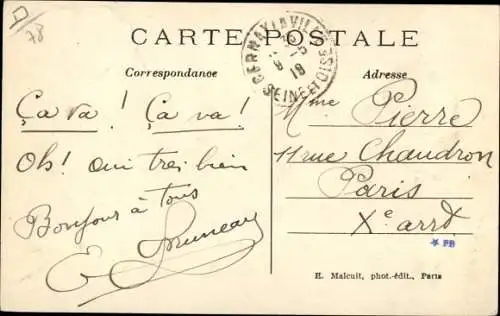 78
CARTE POSTALE
CERNAY LA VILLE
8-5
18
SEINE ET OISE
Correspondance
Adresse
Ça va! Ça va!
Oh! oui très bien
Bonjour à tous
E. Pruneau
Mme Pierre
11 rue Chaudron
Paris
Xe arrdt
* FB
H. Malcuit, phot.-édit., Paris